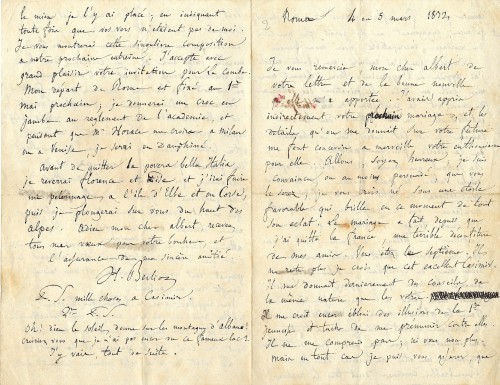 le même je l'y ai placé, en indiquant
toute fois que vos vers n'étaient pas de moi.
Je vous montrerai cette singulière composition
à notre prochaine entrevue. J'accepte avec
grand plaisir votre invitation pour la Combe.
Mon départ de Rome est fixé au 1er
mai prochain; je donnerai un croc en
jambe au règlement de l'académie, et
pendant que Mr Horace me croira à Milan
ou à Venise, je serai en Dauphiné.
Avant de quitter la povera bella Italia
je reverrai florence et et j'irai faire
un pelerinage à l'ile d'Elbe et en Corse,
puis je plongerai sur vous du haut des
alpes. Adieu mon cher albert, recevez
tous mes vœux pour votre bonheur et
l'assurance de ma sincère amitié
H. Berlioz
P.S. mille choses à Casimir.
2me P.S.
Oh! dieu le soleil donne sur les montagnes d'albano!
croiriez vous que je n'ai pas encore vu ce fameux lac?
J'y vais tout de suite.
Rome 4 ou 5 mars 1832
Je vous remercie, mon cher albert de
votre lettre et de la bonne nouvelle
qu'elle m'a apportée; j'avais appris
indirectement votre prochain mariage, et les
détails qu'on me donnait sur votre future
me font concevoir à merveille votre enthousiasme
pour elle. Allons soyez heureux, je suis
convaincu ou au moins persuadé, que vous
le serez, je vous crois né sous une étoile
favorable qui brille en ce moment de tout
son éclat. Le mariage a fait depuis que
j'ai quitté la france une terrible
de mes amis. Vous êtes le septième. Il
ne reste plus je crois que cet excellent Casimir.
Il me donnait dernièrement des conseils de
la même nature que les vôtres
Il me croit encore ébloui des illusions de la 1ère
jeunesse et tâche de me prémunir contre elles
Il ne me comprend pas; ni vous non plus.
Mais en tout cas je puis vous assurer, que